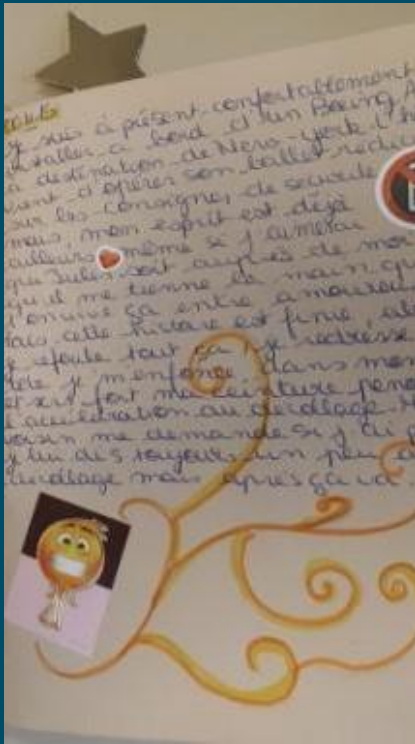 je suis à présent confortablement
installée à bord d'un Boeing A
à destination de New-york l'h
vient d'opérer son ballet rédui
sur les consignes de sécurité
mais mon esprit est déjà
ailleurs même si j'aimerai
que Jules soit auprès de mo
qu'il me tienne la main qu
l'on vive ça entre amoureux
mais cette histoire est finie, al
je refoule tout ça, je redresse
tête je m'enfonce dans mon
et serre fort ma ceinture pend
l'accélération au décollage.
voisin me demande si j'ai p
je lui dis toujours un peu a
décollage mais après ça va